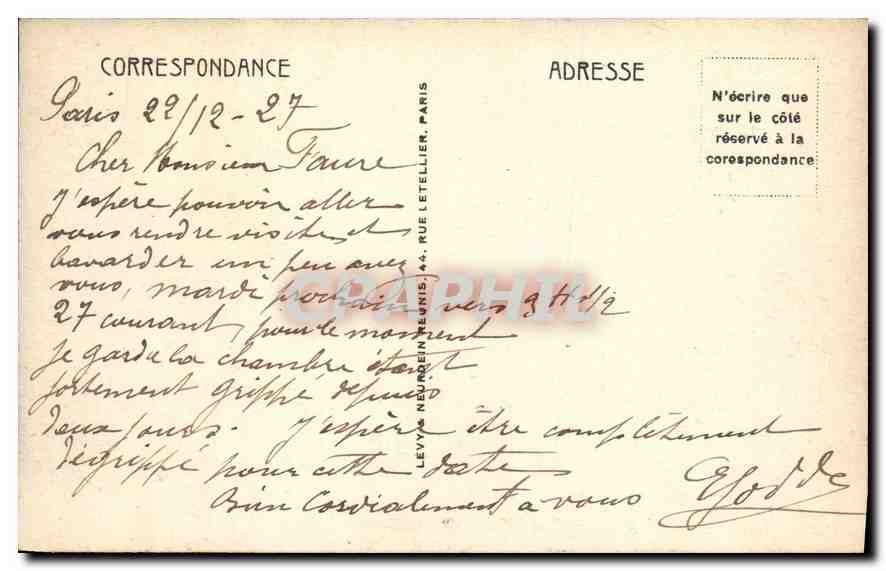 CORRESPONDANCE
ADRESSE
N'écrire que
sur le côté
réservé à la
corespondance
Paris 22/12-27
Cher Monsieur Faure
J'espère pouvoir aller
vous rendre visite et
bavarder un peu avec
vous, mardi prochain vers 9 H 1/2
27 courant, pour le moment
je garde la chambre étant
fortement grippé depuis
deux jours. J'espère être complètement
dégrippé pour cette date
Bien Cordialement a vous
LEVY & NEURDEIN REUNIS, 44, RUE LETELLIER, PARIS
CPAPHIL